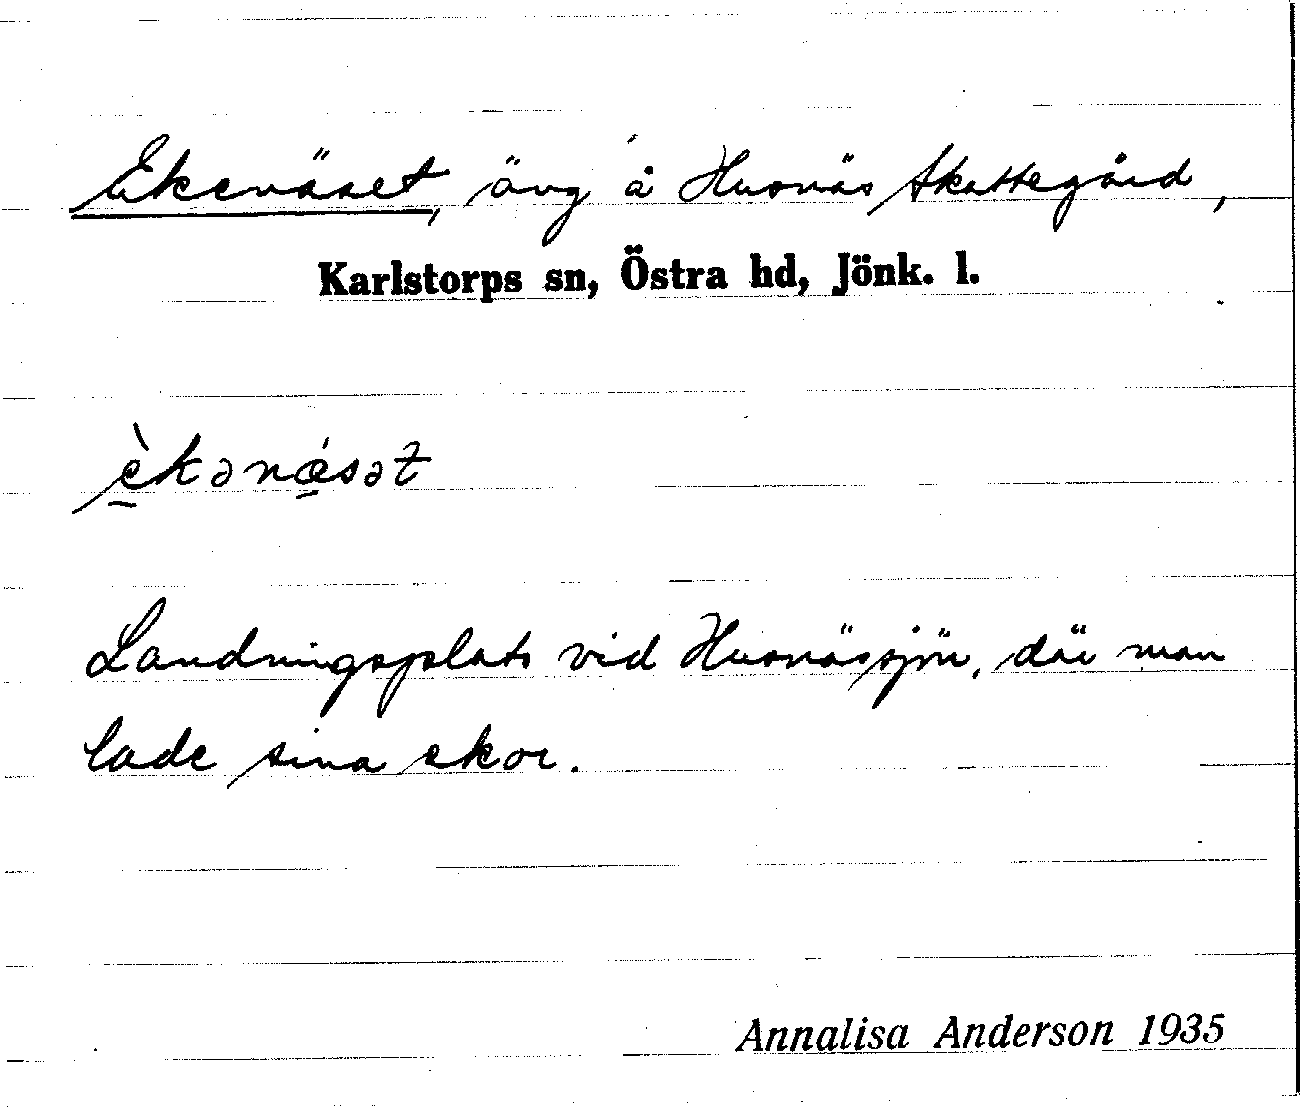 Ekenäset, äng å Husnäs Skattegård,
Karlstorps sn, Östra hd, Jönk. l.
è̠kənǽ̠sət
Landningsplats vid Husnässjön, där man
lade sina ekor.
Annalisa Anderson 1935